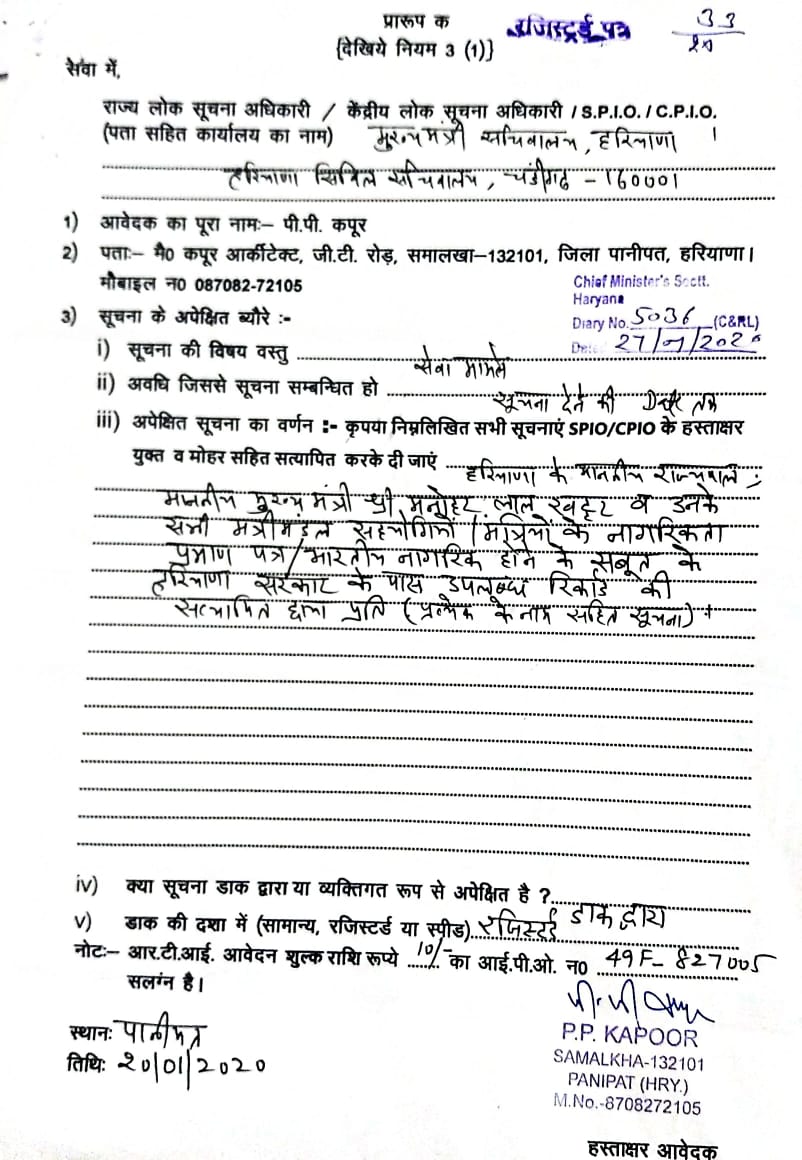 प्रारूप क
रजिस्टर्ड पत्र
33
{देखिये नियम 3 (1)}
सेवा में,
राज्य लोक सूचना अधिकारी / केंद्रीय लोक सूचना अधिकारी / S.P.I.O. / C.P.I.O.
(पता सहित कार्यालय का नाम) मुख्यमंत्री सचिवालय, हरियाणा ।
हरियाणा सिविल सचिवालय, चंडीगढ़ - 160001
1) आवेदक का पूरा नामः– पी.पी. कपूर
2) पताः– मै0 कपूर आर्कीटेक्ट, जी.टी. रोड़, समालखा–132101, जिला पानीपत, हरियाणा।
मौबाइल न0 087082-72105
Chief Minister's Sectt.
Haryana
3) सूचना के अपेक्षित ब्यौरे :-
Diary No. 5036 (C&RL)
Date 27/1/2020
i) सूचना की विषय वस्तु सेवा मामले
ii) अवधि जिससे सूचना सम्बन्धित हो सूचना देने की Date तक
iii) अपेक्षित सूचना का वर्णन :- कृपया निम्नलिखित सभी सूचनाएं SPIO/CPIO के हस्ताक्षर
युक्त व मोहर सहित सत्यापित करके दी जाएं हरियाणा के माननीय राज्यपाल,
माननीय मुख्य मंत्री श्री मनोहर लाल खट्टर व उनके
सभी मंत्रीमंडल सहयोगियों/मंत्रियों के नागरिकता
प्रमाण पत्र/भारतीय नागरिक होने के सबूत के
हरियाणा सरकार के पास उपलब्ध रिकॉर्ड की
सत्यापित छाया प्रति (प्रत्येक के नाम सहित सूचना)
iv) क्या सूचना डाक द्वारा या व्यक्तिगत रूप से अपेक्षित है ? डाक द्वारा
v) डाक की दशा में (सामान्य, रजिस्टर्ड या स्पीड) रजिस्टर्ड
नोटः– आर.टी.आई. आवेदन शुल्क राशि रूप्ये 10/- का आई.पी.ओ. न0 49F-827005
सलग्न है।
स्थानः पानीपत
तिथिः 20/01/2020
P.P. KAPOOR
SAMALKHA-132101
PANIPAT (HRY.)
M.No.-8708272105
हस्ताक्षर आवेदक